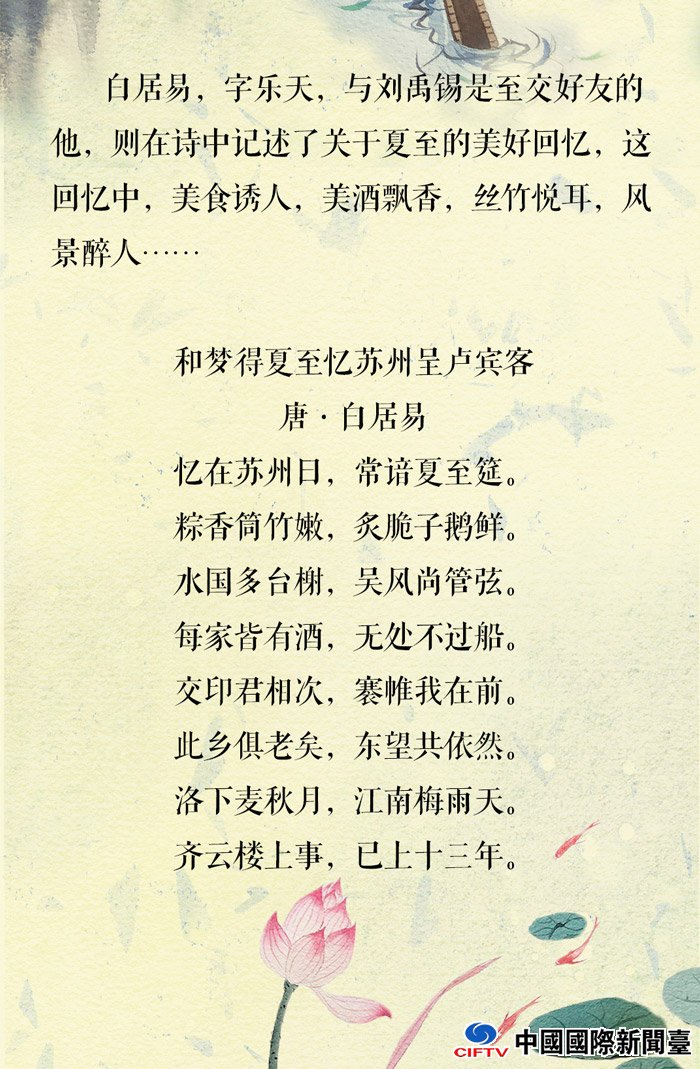 白居易，字乐天，与刘禹锡是至交好友的
他，则在诗中记述了关于夏至的美好回忆，这
回忆中，美食诱人，美酒飘香，丝竹悦耳，风
景醉人……
和梦得夏至忆苏州呈卢宾客
唐·白居易
忆在苏州日，常谙夏至筵。
粽香筒竹嫩，炙脆子鹅鲜。
水国多台榭，吴风尚管弦。
每家皆有酒，无处不过船。
交印君相次，褰帷我在前。
此乡俱老矣，东望共依然。
洛下麦秋月，江南梅雨天。
齐云楼上事，已上十三年。
CIFTV 中國國際新聞臺